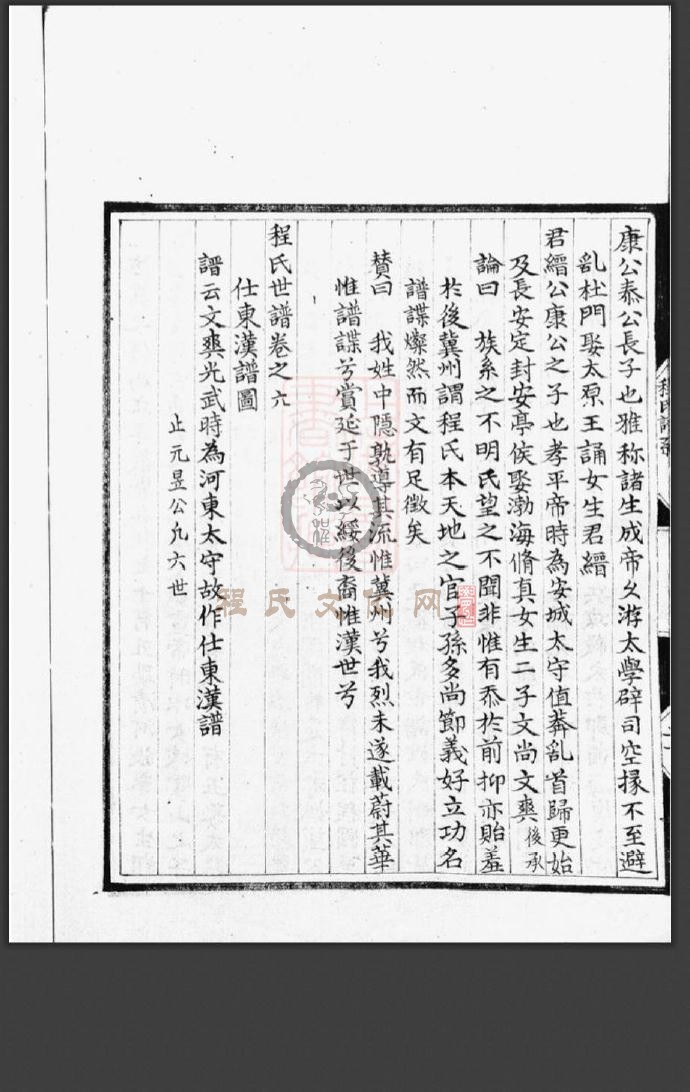 康公泰公長子也雅称諸生成帝攵游太學辟司空掾不至避
乱杜門娶太原王誦女生君縉
君縉公康公之子也孝平帝時為安城太守值莽乱首歸更始
及長安定封安亭侯娶渤海脩真女生二子文尚文奭後承
論曰 族系之不明氏望之不聞非惟有忝於前抑亦貽羞
於後冀州謂程氏本天地之官子孫多尚節義好立功名
譜諜燦然而文有足徵矣
賛曰 我姓中隱孰導其流惟冀州兮我烈未遂載蔚其華
惟譜諜兮賞延于世以綏後裔惟漢世兮
程氏世譜卷之六
仕東漢譜圖
譜云文奭光武時為河東太守故作仕東漢譜
止元昱公九六世
程氏文化网